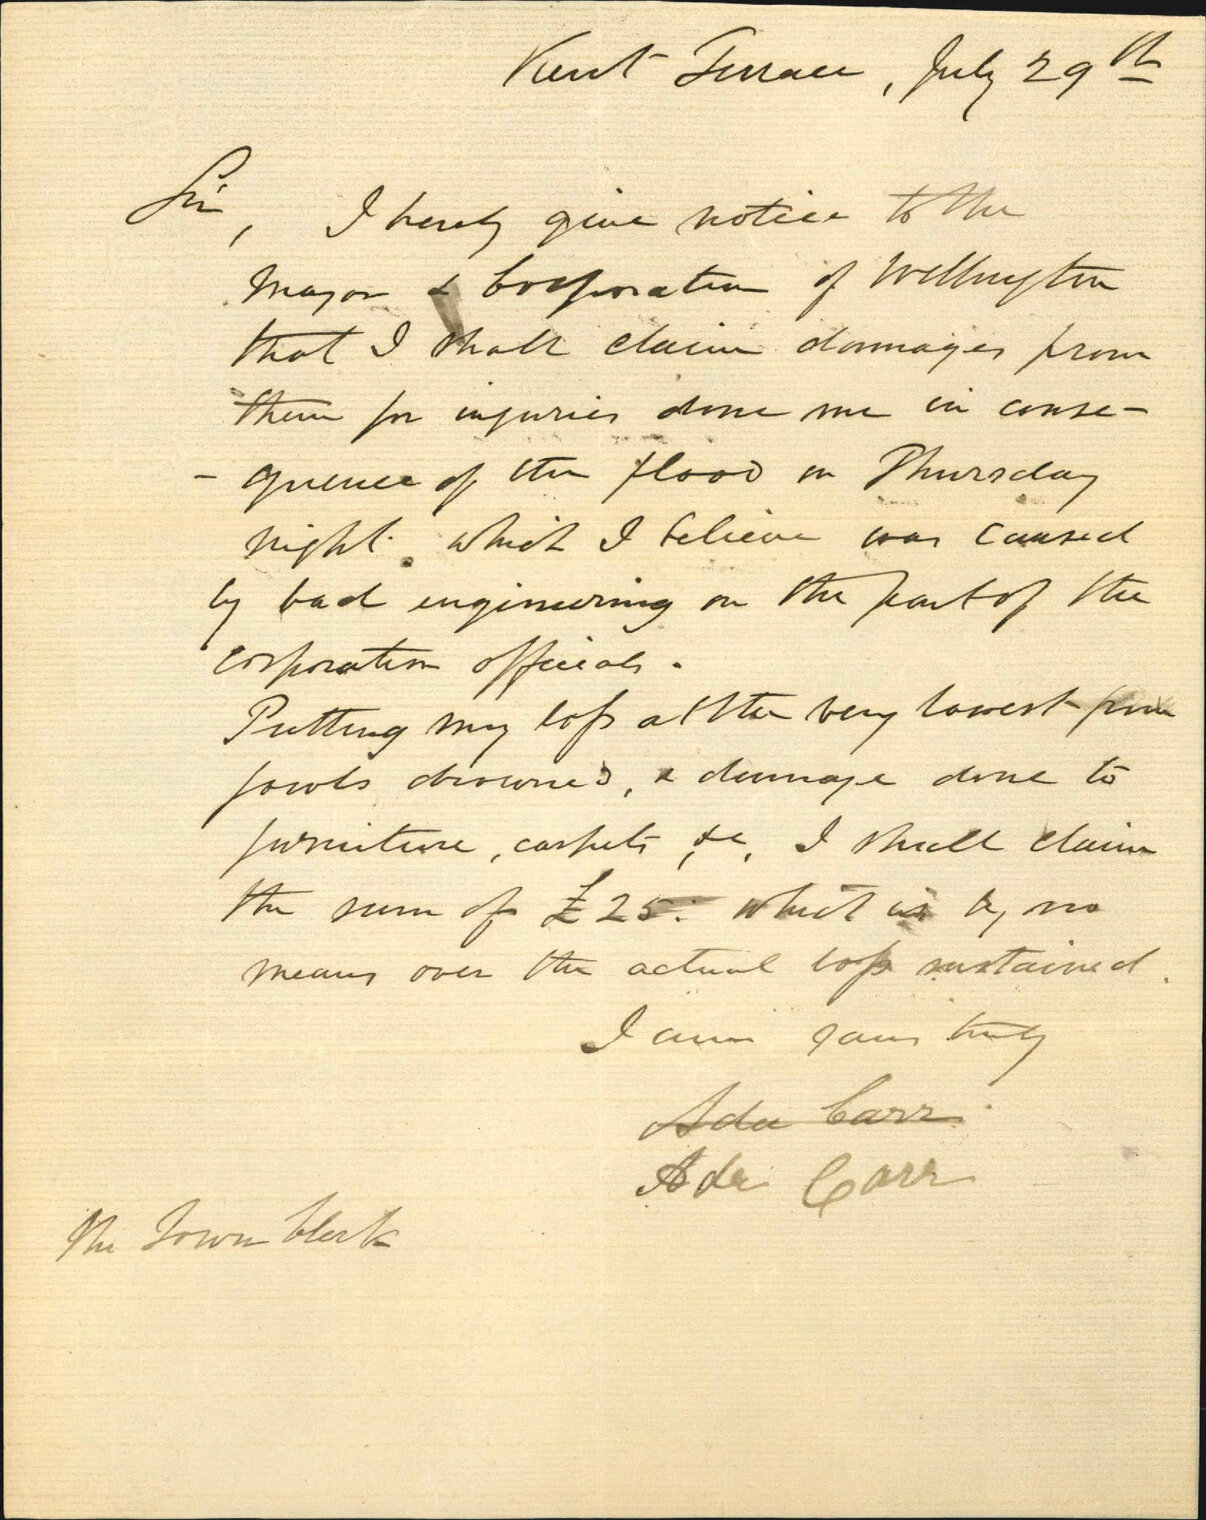 Kent Terrace, July 29th
Sir, I hereby give notice to the
Mayor & Corporation of Wellington
that I shall claim damages from
them for injuries done me in conse-
-quence of the flood on Thursday
night. which I believe was caused
by bad engineering on the part of the
corporation officials.
Putting my loss at the very lowest from
fowls drowned, & damage done to
furniture, carpets, &c, I shall claim
the sum of £25. which is by no
means over the actual loss sustained.
I am yours truly
Ada Carr.
Ada Carr
The Town Clerk